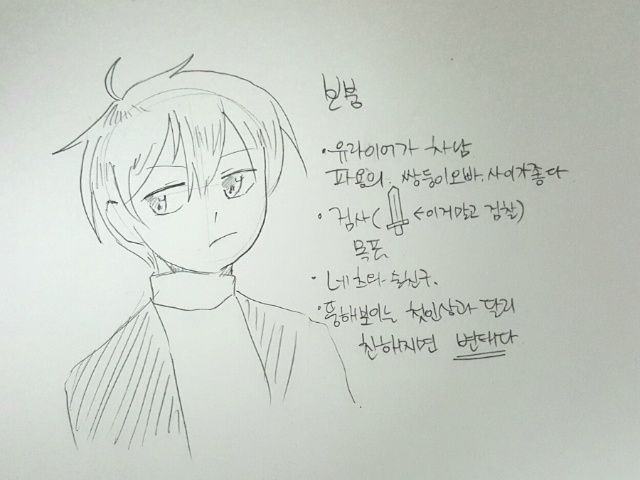 본봉
• 유라이어가 차남
파올의 쌍둥이오빠. 사이가좋다
• 검사( ←이거말고 검찰)
목표
• 네츠타 술친구.
• 뚱해보이는 첫인상과 달리
친해지면 변태다